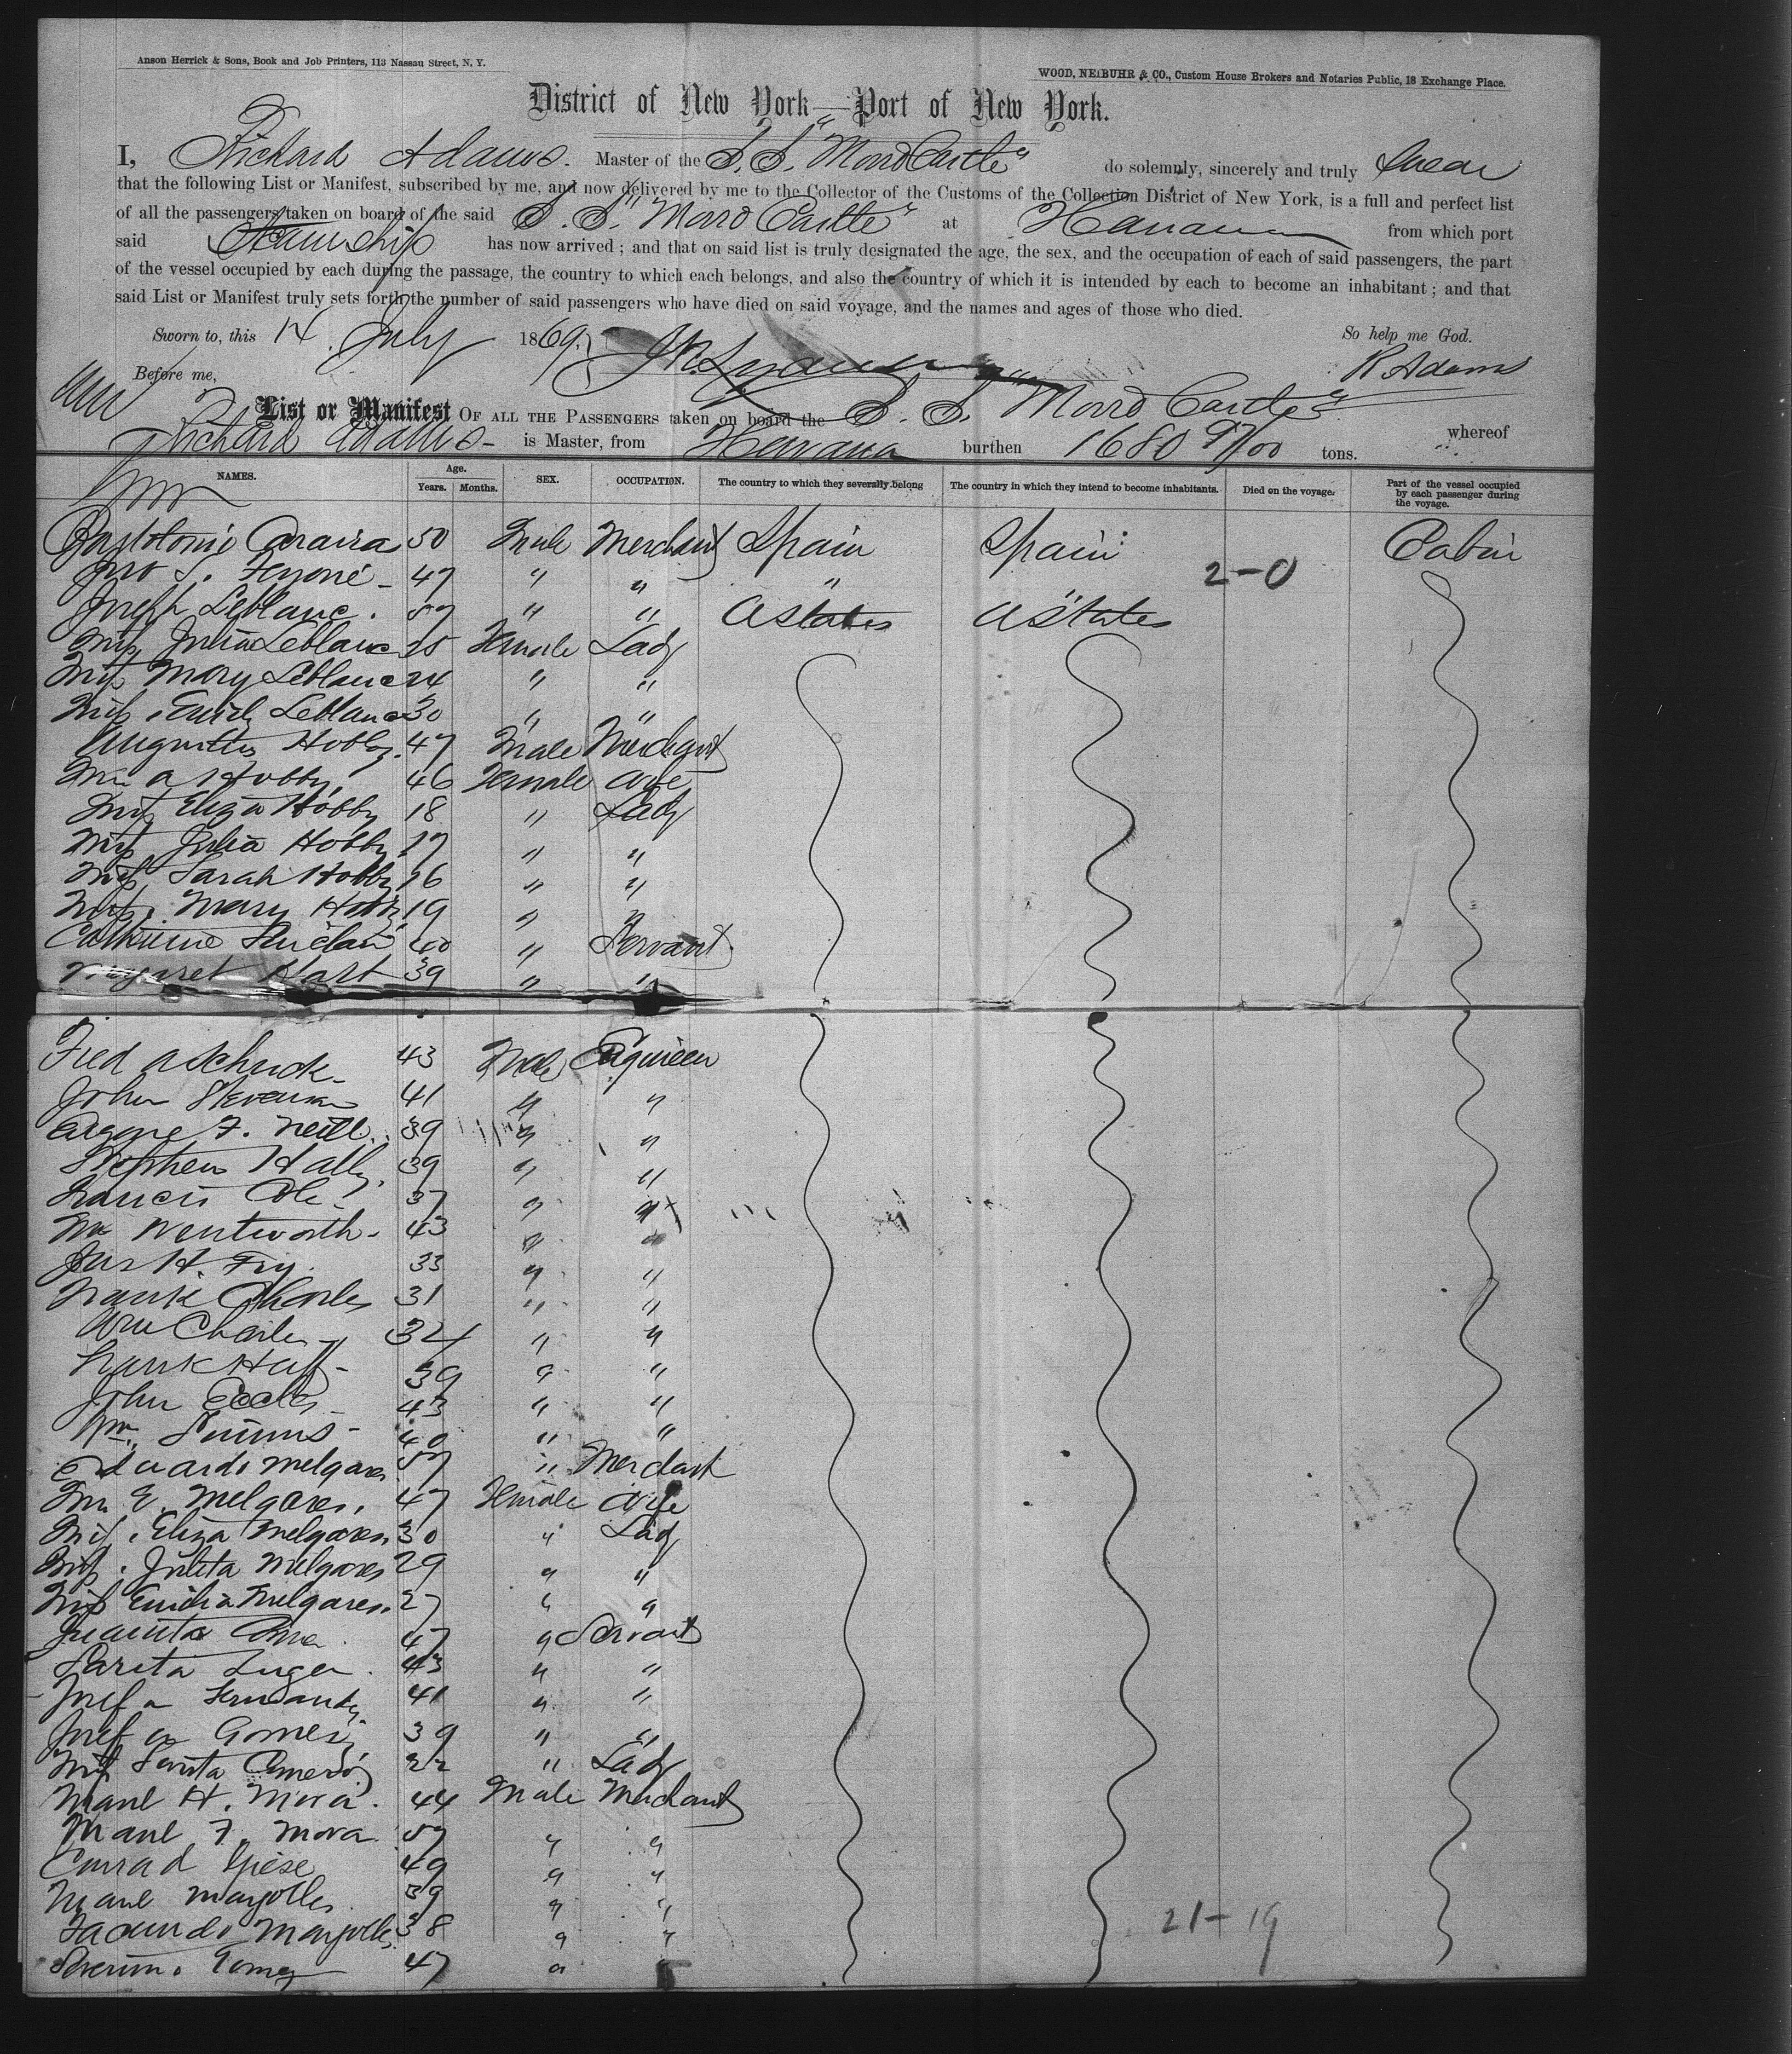 Anson Herrick & Sons, Book and Job Printers, 113 Nassau Street, N. Y.
WOOD, NEIBUHR & CO., Custom House Brokers and Notaries Public, 18 Exchange Place.
District of New York—Port of New York.
I, Richard Adams. Master of the S. S. "Morro Castle" do solemnly, sincerely and truly swear
that the following List or Manifest, subscribed by me, and now delivered by me to the Collector of the Customs of the Collection District of New York, is a full and perfect list
of all the passengers taken on board of the said S. S. "Morro Castle" at Havana from which port
said Steamship has now arrived ; and that on said list is truly designated the age, the sex, and the occupation of each of said passengers, the part
of the vessel occupied by each during the passage, the country to which each belongs, and also the country of which it is intended by each to become an inhabitant ; and that
said List or Manifest truly sets forth the number of said passengers who have died on said voyage, and the names and ages of those who died.
Sworn to, this 14 July 1869. So help me God.
Before me, R Adams
List or Manifest OF ALL THE PASSENGERS taken on board the S. S. "Morro Castle" whereof
Richard Adams - is Master, from Havana burthen 1680 97/00 tons.
NAMES. Age. Years. Months. SEX. OCCUPATION. The country to which they severally belong The country in which they intend to become inhabitants. Died on the voyage. Part of the vessel occupied by each passenger during the voyage.
50 Male Merchant Spain Spain Cabin
47 " " " " 2-0
Joseph Leblanc. 57 " " U States U States
Miss Julia Leblanc 25 Female Lady
Miss Mary Leblanc 24 " "
Miss Emily Leblanc 30 " "
Augustus Hobby. 47 Male Merchant
Mrs A Hobby 46 Female Wife
Miss Eliza Hobby 18 " Lady
Miss Julia Hobby 17 " "
Miss Sarah Hobby 16 " "
Miss Mary Hobby 19 " "
Catherine Sinclair 40 " Servant
Margaret Hart 39 " "
Fred 43 Male Engineer
John Stevenson 41 " "
F. Neill. 39 " "
Stephen 39 " "
Francis Cole 37 " "
Mr Wentworth - 43 " "
Jas H. Fry. 33 " "
Frank Charles 31 " "
Wm Charles 34 " "
Frank 39 " "
John Eccles 43 " "
Wm. Simms - 40 " "
Eduardo Melgares 57 " Merchant
Mrs E. Melgares. 47 Female Wife
Miss Eliza Melgares. 30 " Lady
Miss Julieta Melgares 29 " "
Miss Emilia Melgares. 27 " "
Juanita 47 " Servant
43 " "
Josefa Fernandez 41 " "
Josefa Gomez 39 " "
Miss 22 " Lady
Manl H. Mora. 44 Male Merchant
Manl F. Mora 57 " "
Conrad Giese 49 " "
Manl Mayolles 39 " "
Facundo Mayolles 38 " "
Severino Gomez 47 " "
21-19